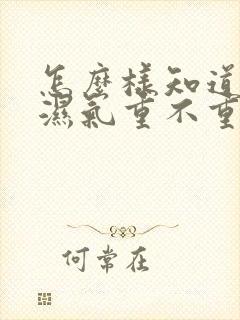 怎麼樣知道
濕氣重不重
何常在